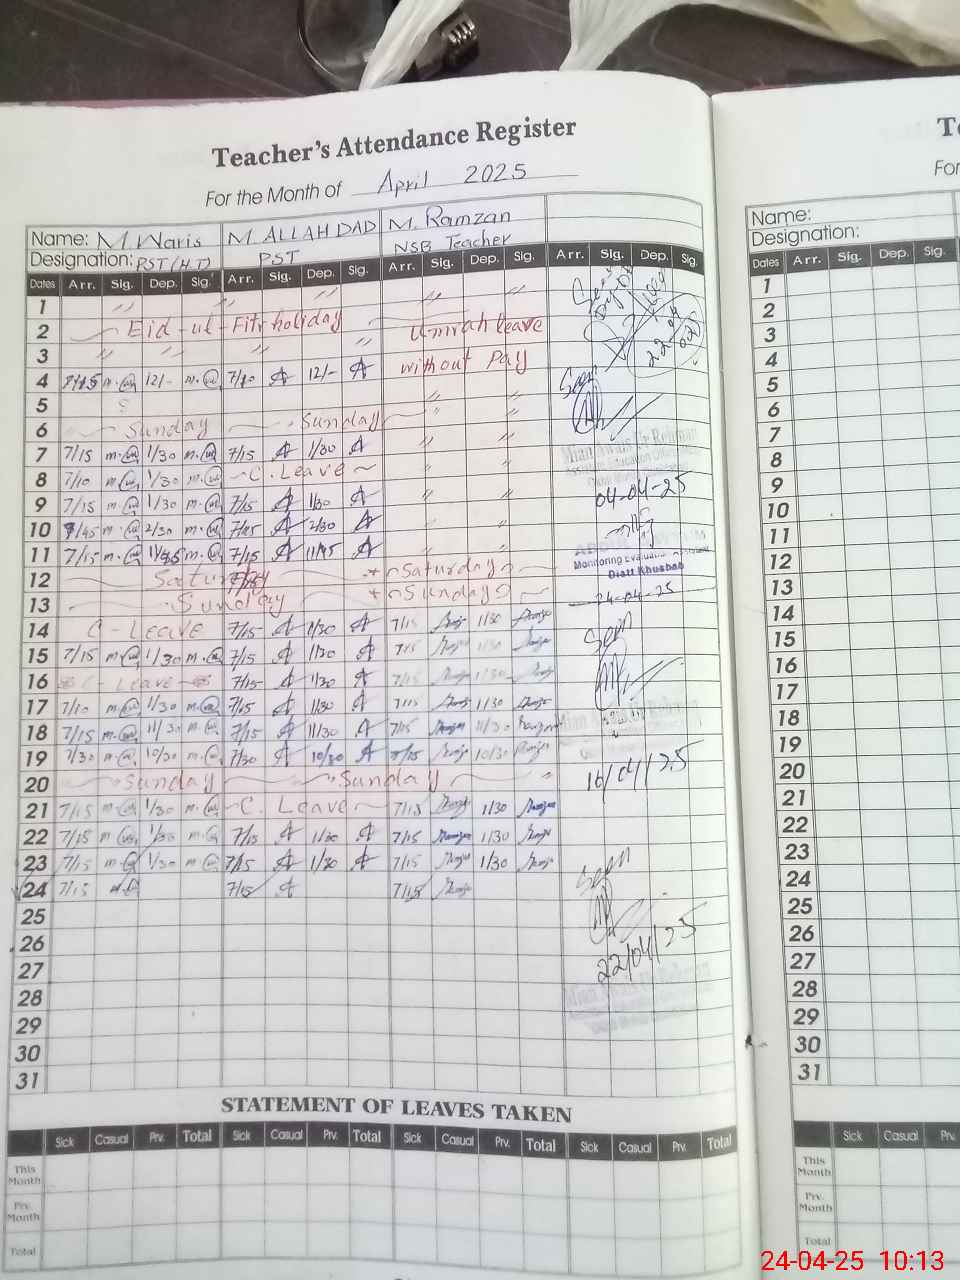 Teacher's Attendance Register
For the Month of April 2025
Name: M. Waris M. ALLAH DAD M. Ramzan
Designation: PST (H.T) PST NSB Teacher
Dates Arr. Sig. Dep. Sig. Arr. Sig. Dep. Sig. Arr. Sig. Dep. Sig. Arr. Sig. Dep. Sig.
1 " " " " "
2 Eid-ul-Fitr holiday Umrah leave
3 " " " without Pay
4 7/15 12/- 7/10 A 12/- A
5 " "
6 Sunday Sunday " "
7 7/15 1/30 7/15 A 1/30 A " "
8 7/10 1/30 C. Leave " "
9 7/15 1/30 7/15 A 1/30 A " "
10 7/45 2/30 7/45 A 2/30 A " "
11 7/15 11/45 7/15 A 11/45 A " "
12 Saturday Saturday
13 Sunday Sunday
14 C-Leave 7/15 A 1/30 A 7/15 1/30
15 7/15 1/30 7/15 A 1/30 A 7/15 1/30
16 C-Leave 7/15 A 1/30 A 7/15 1/30
17 7/10 1/30 7/15 A 1/30 A 7/15 1/30
18 7/15 11/30 7/15 A 11/30 A 7/15 11/30
19 7/30 10/30 7/30 A 10/30 A 7/15 10/30
20 Sunday Sunday "
21 7/15 1/30 C. Leave 7/15 1/30
22 7/15 1/30 7/15 A 1/30 A 7/15 1/30
23 7/15 1/30 7/15 A 1/30 A 7/15 1/30
24 7/15 7/15 A 7/15
25
26
27
28
29
30
31
Seen
Seen
Mian Awais Ur Rehman
04-04-25
Monitoring Evaluation Assistant
Distt Khushab
24-04-25
Seen
Mian Awais Ur Rehman
16/04/25
Seen
22/04/25
Mian Awais Ur Rehman
STATEMENT OF LEAVES TAKEN
Sick Casual Prv. Total Sick Casual Prv. Total Sick Casual Prv. Total Sick Casual Prv. Total
This Month
Prv. Month
Total
Name:
Designation:
Dates Arr. Sig. Dep. Sig. Arr.
1
2
3
4
5
6
7
8
9
10
11
12
13
14
15
16
17
18
19
20
21
22
23
24
25
26
27
28
29
30
31
Sick Casual
This Month
Prv. Month
Total
24-04-25 10:13